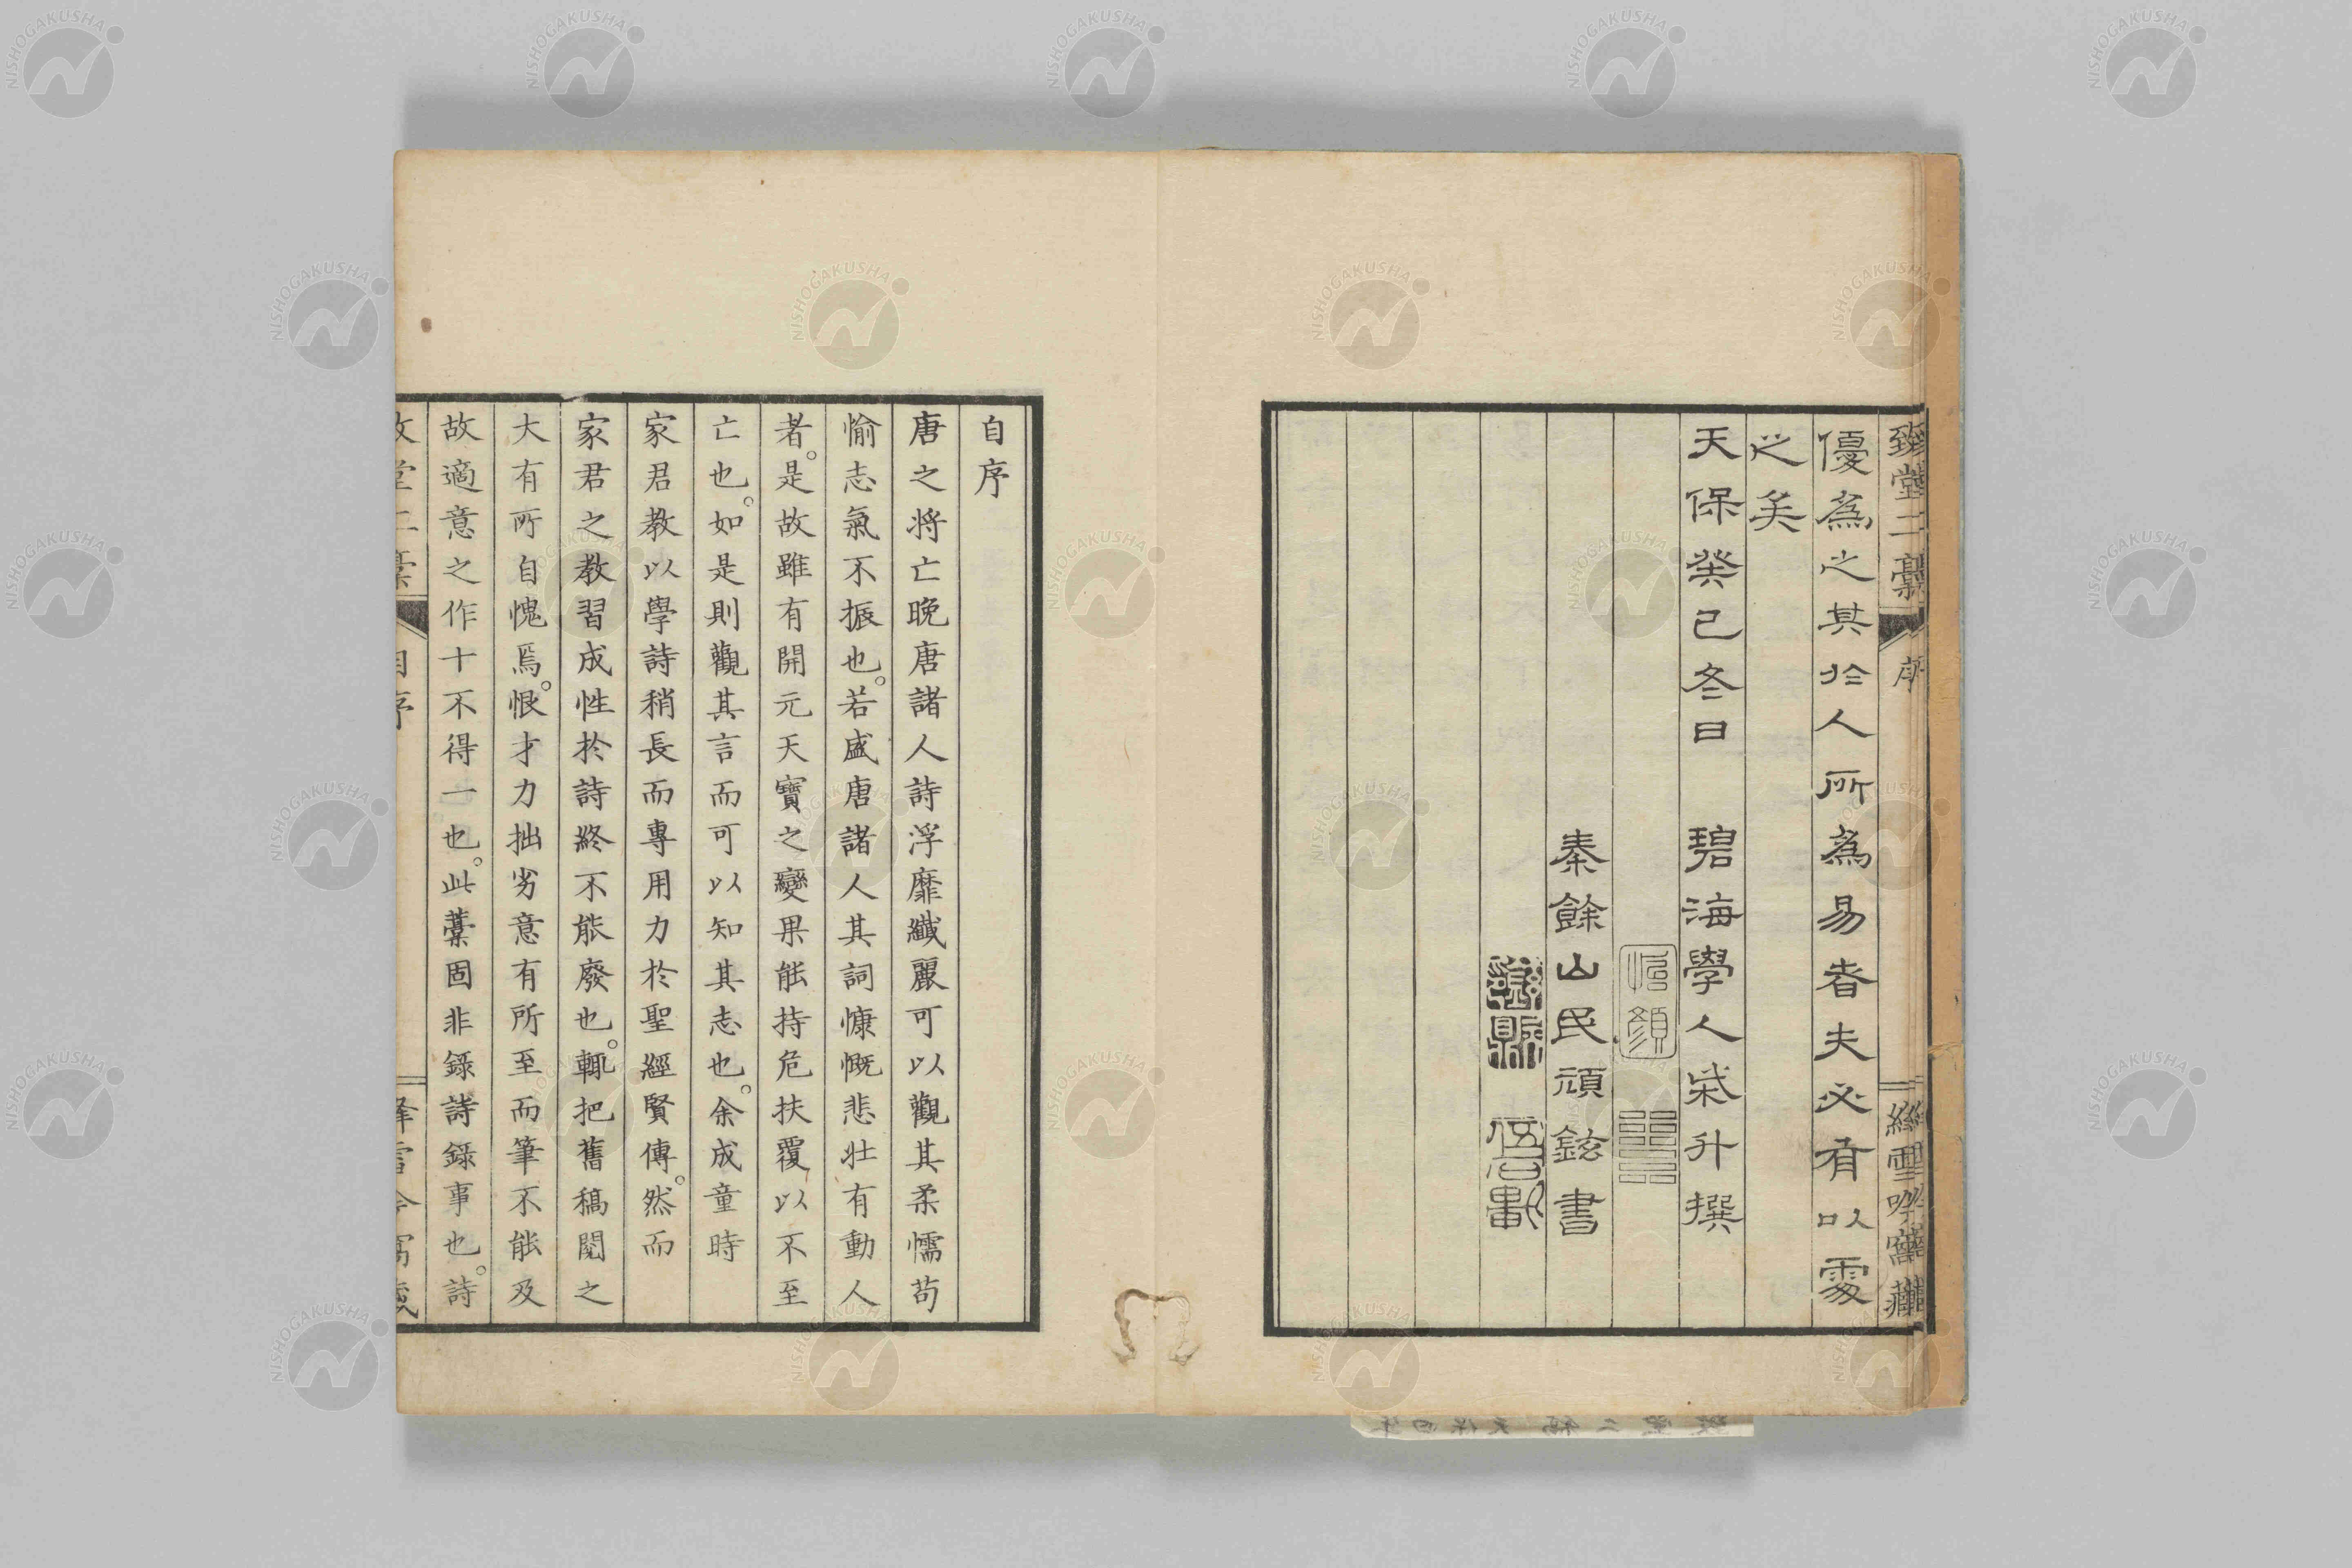 優為之其於人所為易者夫必有以處
之矣
天保癸巳冬日　碧海學人柴升撰
秦餘山民頑鉉書
自序
唐之將亡晚唐諸人詩浮靡纖麗可以觀其柔懦苟
愉志氣不振也。若盛唐諸人其詞慷慨悲壯有動人
者。是故雖有開元天寶之變果能持危扶覆以不至
亡也。如是則觀其言而可以知其志也。余成童時
家君教以學詩稍長而專用力於聖經賢傳。然而
家君之教習成性於詩終不能廢也。輒把舊稿閱之
大有所自愧焉。恨才力拙劣意有所至而筆不能及
故適意之作十不得一也。此藁固非錄詩錄事也。詩
NISHOGAKUSHA